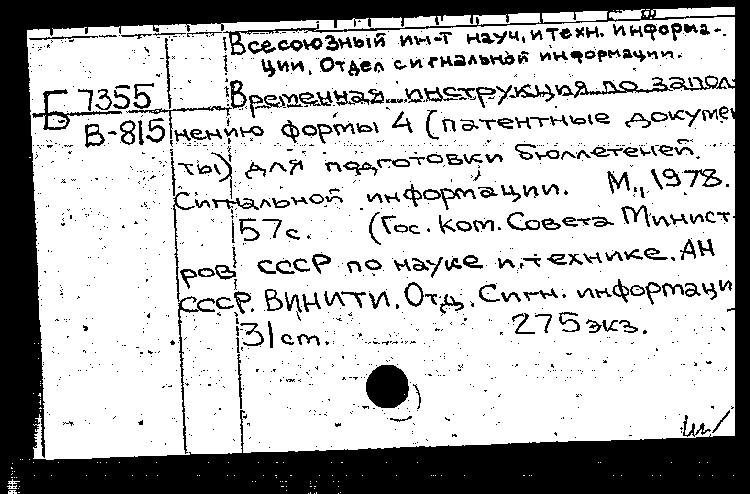 Всесоюзный ин-т науч. и техн. информа-
ции. Отдел сигнальной информации.
Б 7355
В-815
Временная инструкция по запол-
нению формы 4 (патентные докумен
ты) для подготовки бюллетеней
Сигнальной информации. М., 1978.
57с. (Гос. ком. Совета Минист-
ров СССР по науке и технике. АН
СССР. ВИНИТИ. Отд. Сигн. информаци
31см. 275экз.